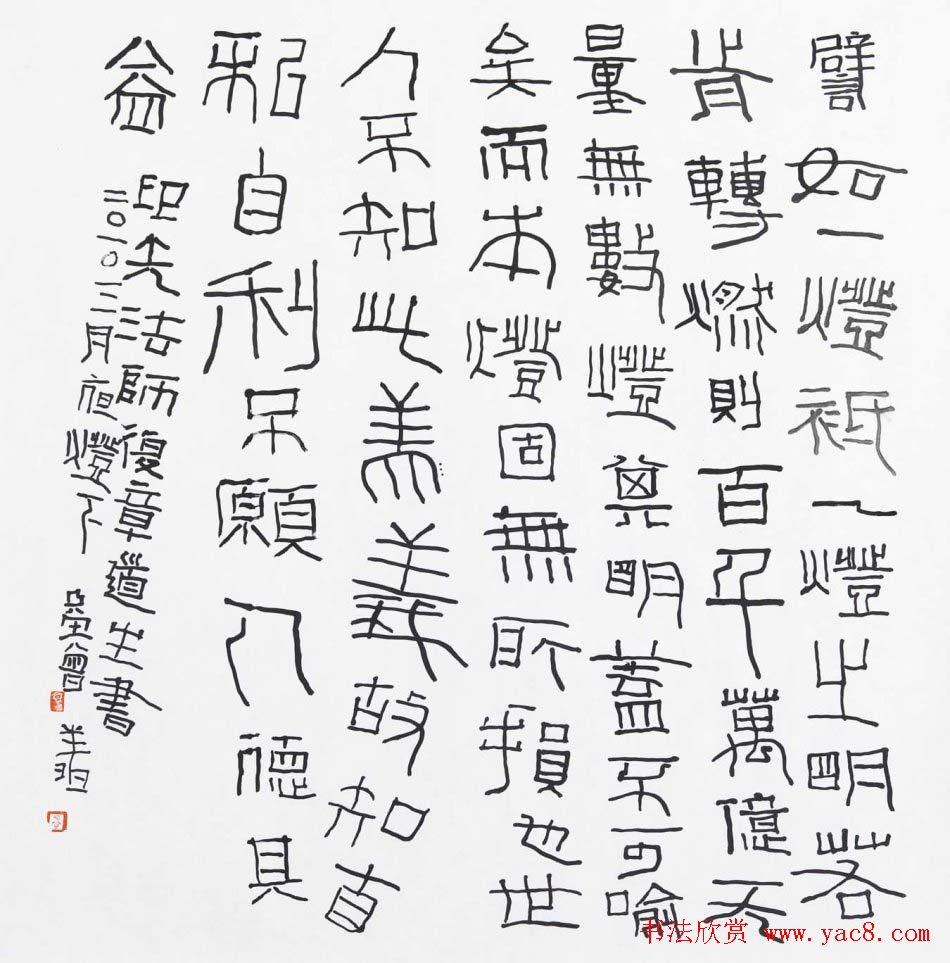 譬如一燈衹一燈之明若
肯轉燃則百千萬億无
量無數燈其明蓋不可喻
矣而本燈固無所損也世
人不知此美義故知自
私自利不願人德其
益
印光法師復章道生書
二〇一〇三月夜燈下
书法欣赏 www.yac8.com